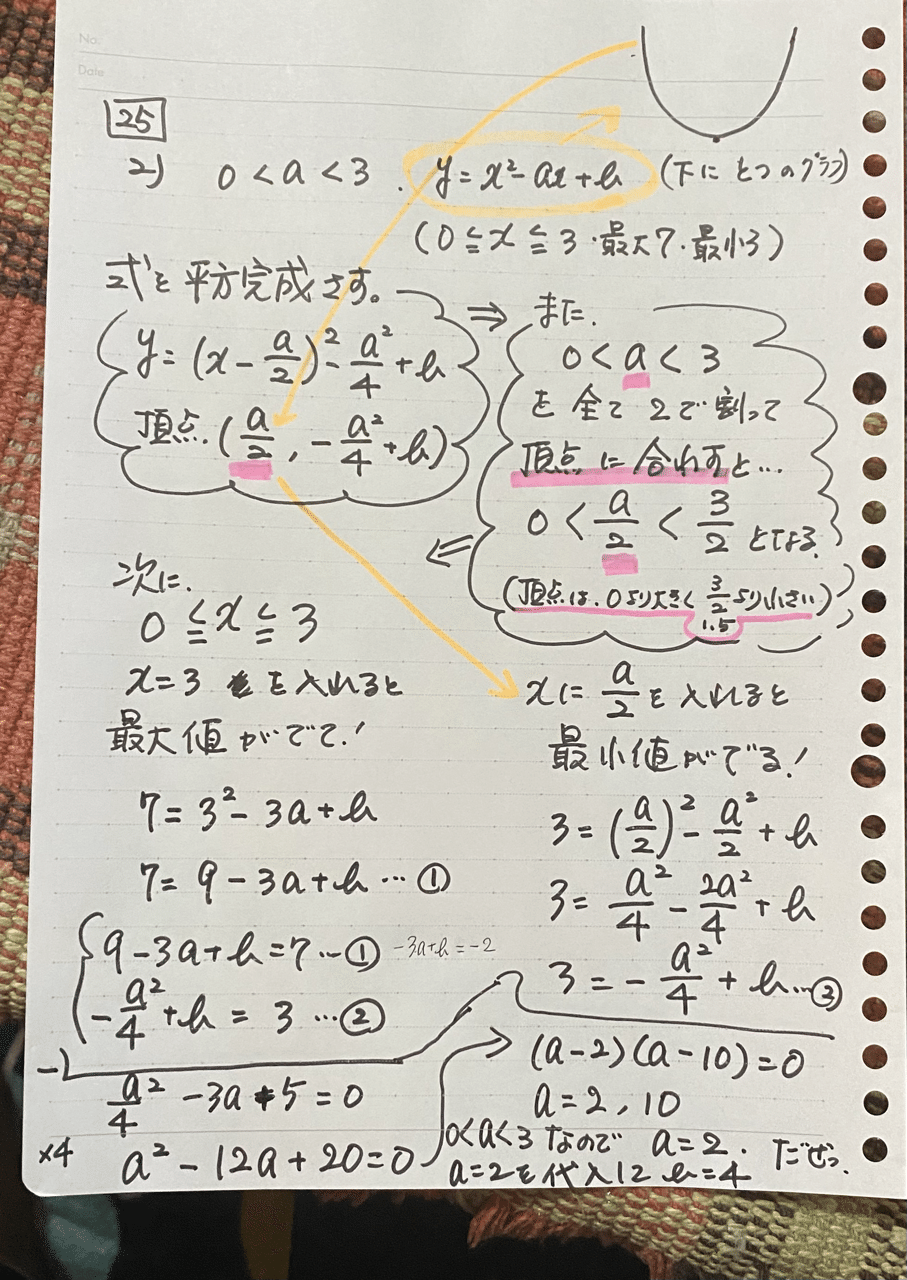 No.
Date
25
2) 0 < a < 3 . y = x² - ax + b (下にとつのグラフ)
(0 ≦ x ≦ 3・最大7・最小3)
式を平方完成さす。
y = (x - a/2)² - a²/4 + b
頂点 (a/2, -a²/4 + b)
⇒ また、
0 < a < 3
を全て2で割って
頂点に合わすと…
0 < a/2 < 3/2 となる
(頂点は、0より大きく 3/2 より小さい)
1.5
⇐
次に、
0 ≦ x ≦ 3
x = 3 を入れると
最大値がでて!
7 = 3² - 3a + b
7 = 9 - 3a + b … ①
xに a/2 を入れると
最小値がでる!
3 = (a/2)² - a²/2 + b
3 = a²/4 - 2a²/4 + b
3 = - a²/4 + b … ③
9 - 3a + b = 7 … ① -3a+b = -2
- a²/4 + b = 3 … ②
-)
a²/4 - 3a + 5 = 0
×4 a² - 12a + 20 = 0
(a-2)(a-10) = 0
a = 2, 10
0<a<3 なので a = 2. だぜっ
a=2を代入に b=4